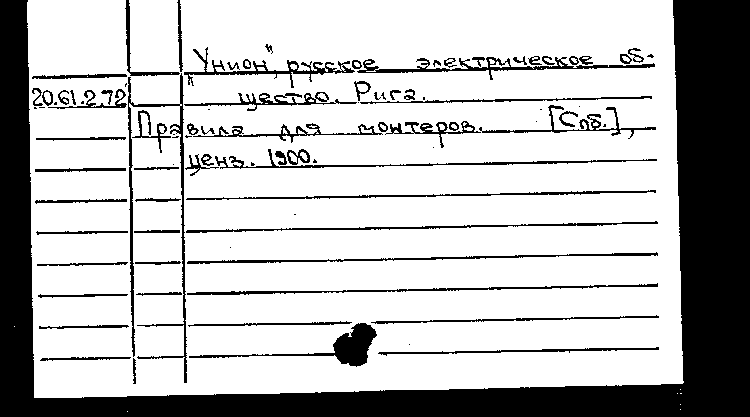 "Унион", русское электрическое об-
20.61.2.72 щество. Рига.
Правила для монтеров. [Спб.],
ценз. 1900.